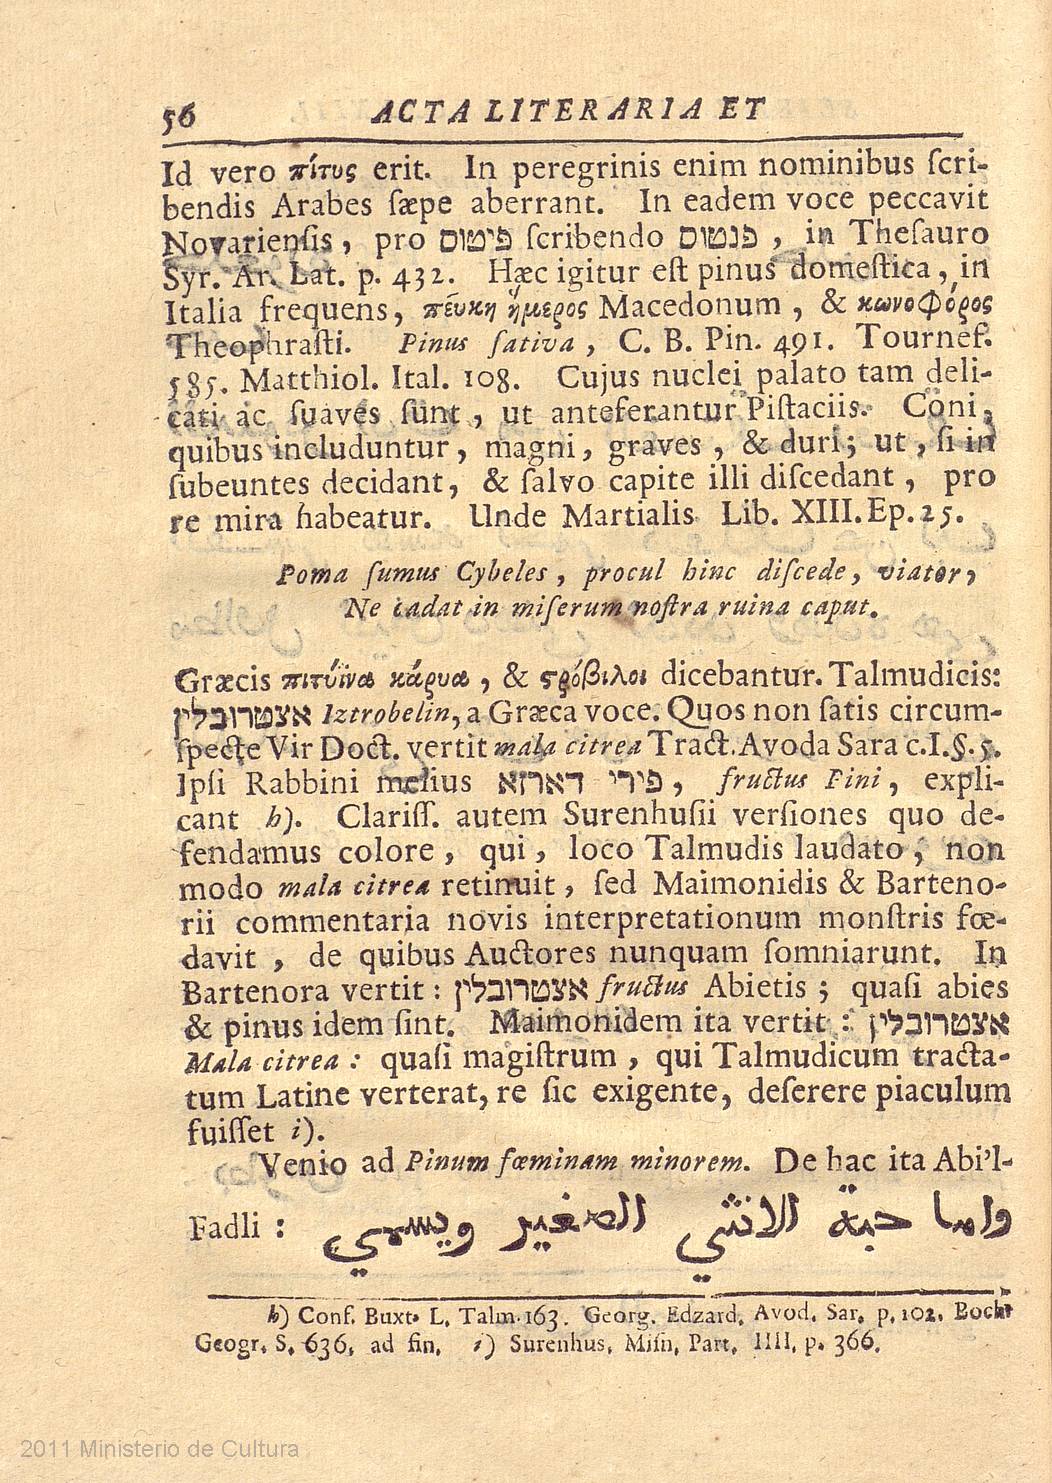 56 ACTA LITERARIA ET
Id vero πίτυς erit. In peregrinis enim nominibus ſcri-
bendis Arabes ſæpe aberrant. In eadem voce peccavit
Novarienſis, pro פיטוס ſcribendo פנטוס, in Theſauro
Syr. Ar. Lat. p. 432. Hæc igitur eſt pinus domeſtica, in
Italia frequens, πεύκη ἥμερος Macedonum, & κωνοφόρος
Theophraſti. Pinus ſativa, C. B. Pin. 491. Tournef.
585. Matthiol. Ital. 108. Cujus nuclei palato tam deli-
cati ac ſuaves ſunt, ut anteferantur Piſtaciis. Coni,
quibus includuntur, magni, graves, & duri; ut, ſi in
ſubeuntes decidant, & ſalvo capite illi diſcedant, pro
re mira habeatur. Unde Martialis Lib. XIII. Ep. 25.
Poma ſumus Cybeles, procul hinc diſcede, viator,
Ne cadat in miſerum noſtra ruina caput.
Græcis πιτύϊνα κάρυα, & ϛρόβιλοι dicebantur. Talmudicis:
אצטרובלין Iztrobelin, a Græca voce. Quos non ſatis circum-
ſpecte Vir Doct. vertit mala citrea Tract. Avoda Sara c. I. §. 5.
Ipſi Rabbini melius פירי דארזא, fructus Pini, expli-
cant h). Clariſſ. autem Surenhuſii verſiones quo de-
fendamus colore, qui, loco Talmudis laudato, non
modo mala citrea retinuit, ſed Maimonidis & Barteno-
rii commentaria novis interpretationum monſtris fœ-
davit, de quibus Auctores nunquam ſomniarunt. In
Bartenora vertit: אצטרובלין fructus Abietis; quaſi abies
& pinus idem ſint. Maimonidem ita vertit: אצטרובלין
Mala citrea: quaſi magiſtrum, qui Talmudicum tracta-
tum Latine verterat, re ſic exigente, deſerere piaculum
fuiſſet i).
Venio ad Pinum fœminam minorem. De hac ita Abi'l-
Fadli: واما حبة الانثي الصغير ويسمي
h) Conf. Buxt. L. Talm. 163. Georg. Edzard. Avod. Sar. p. 102. Bochr
Geogr. S. 636. ad fin. i) Surenhus. Miſn. Part. IIII. p. 366.
2011 Ministerio de Cultura